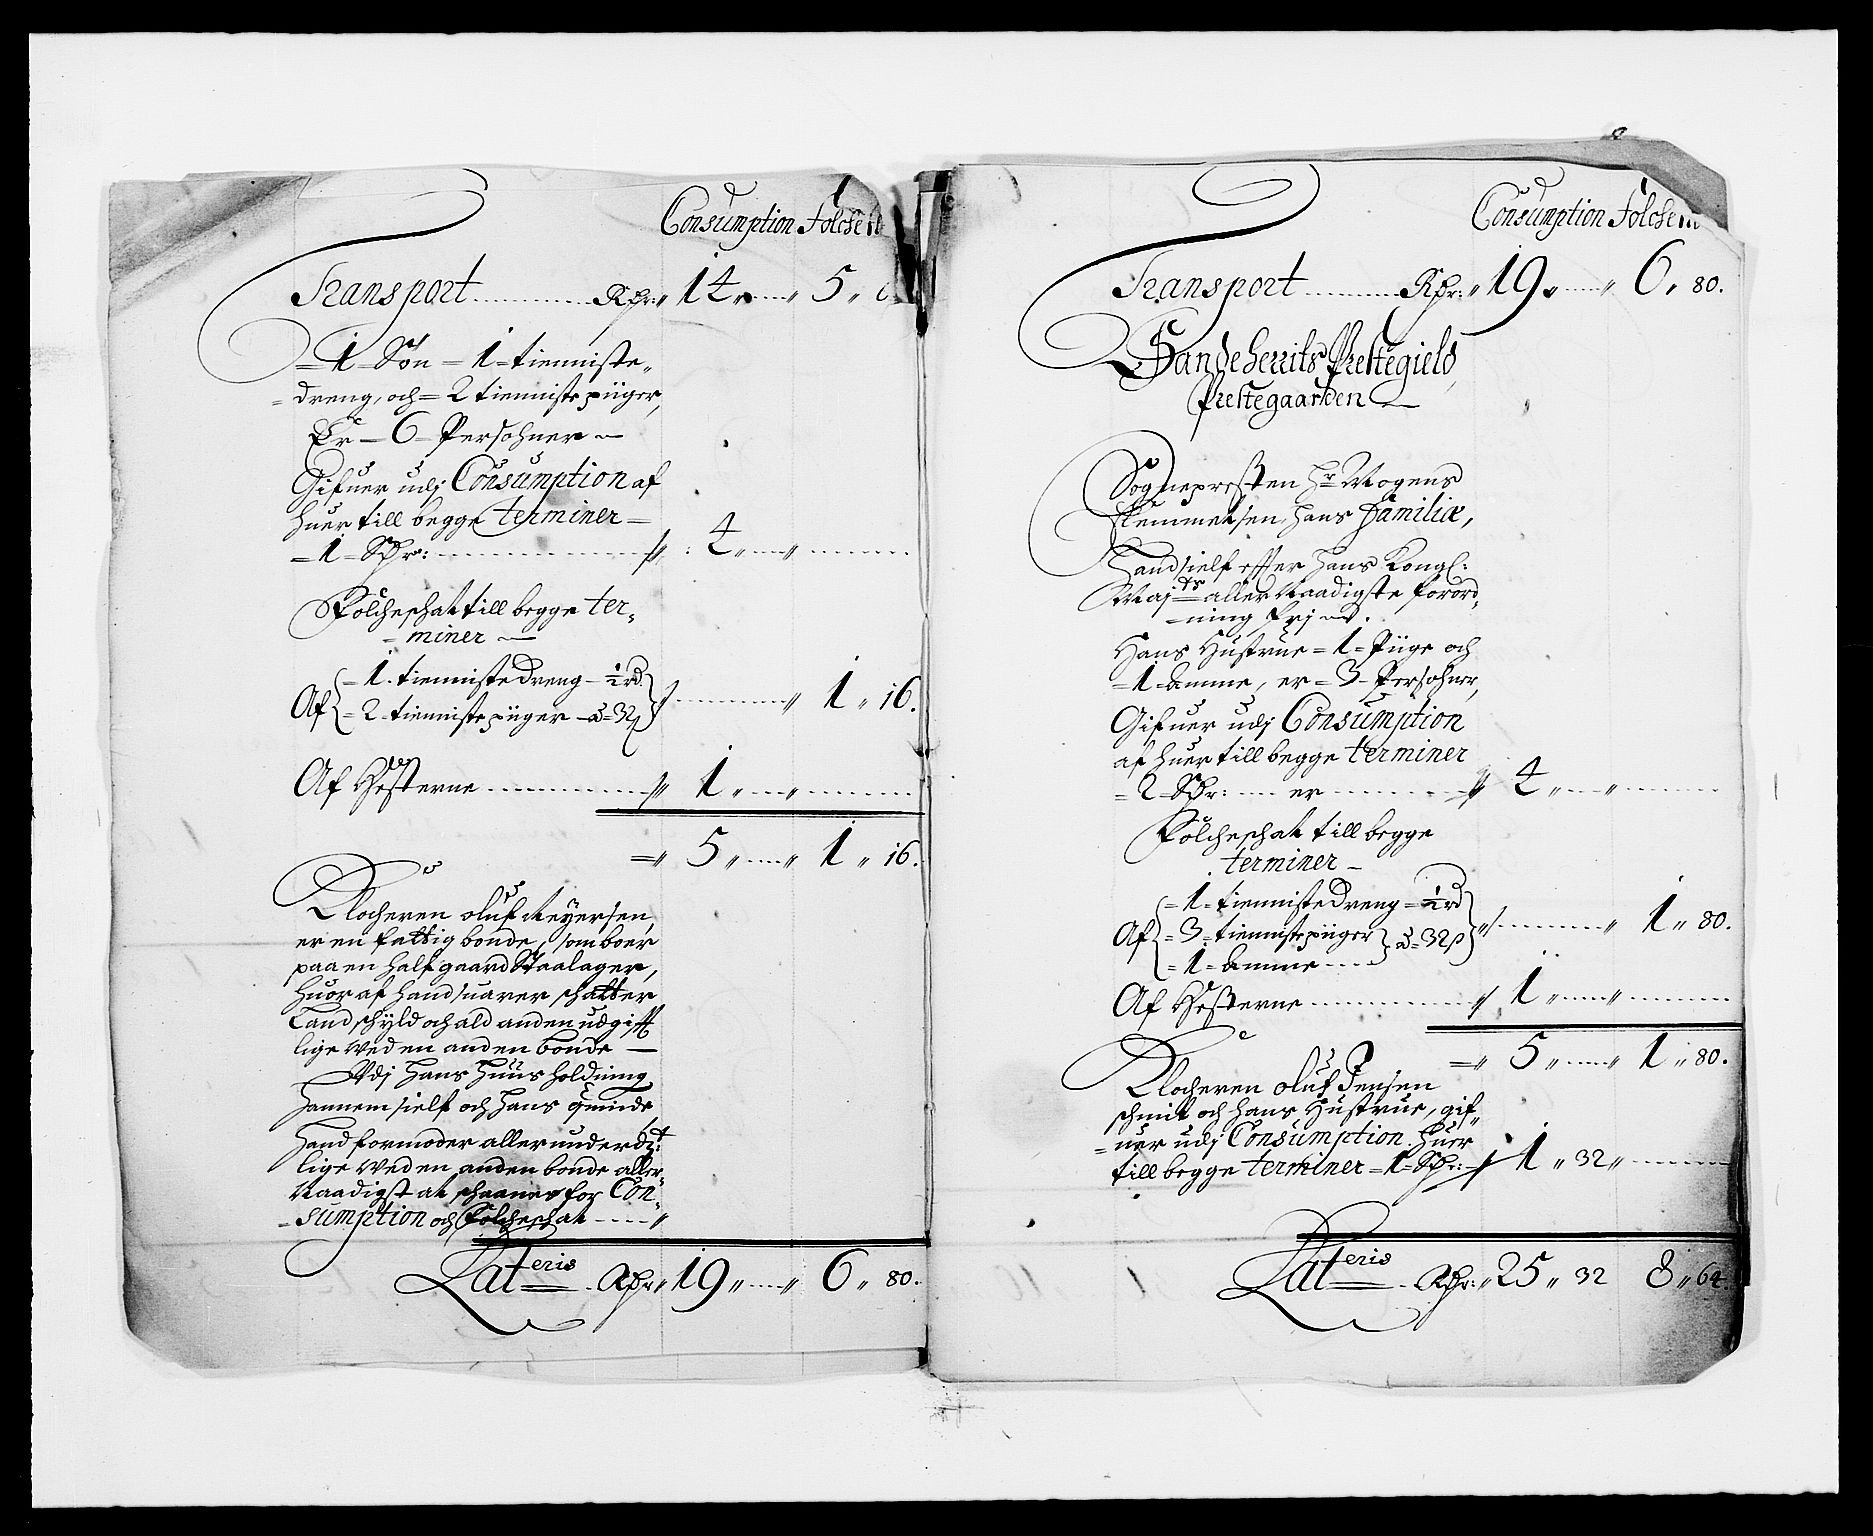 Consumption Folche
Transport Rdr: 14 5
1 Søn 1 tienniste
dreng, och 2 tienniste piiger,
Er 6 Persohner
Gifuer udj Consumption af
huer till begge terminer
1 Rdr: 4
Folcheschat till begge ter-
miner
Af 1 tienniste Dreng ½ rd
2 tienniste piiger a 32 β 1 16.
Af Hesterne 1
5 1 16.
Klocheren oluf Reyersen
er en fattig bonde, som boer
paa en half gaard Staalager,
huor af hand suarer schatter
Landschyld och ald anden udgiff
lige wed en anden bonde
Udj hans huus holdning
hannem sielf och hans quinde,
hand formoder allerunderdt:
lige wed en anden bonde aller-
Naadigst at schaanes for Con-
sumption och Folcheschat
Lateris Rdr: 19 6 80.
Consumption Folche
Transport Rdr: 19 6 80.
Sandeherrits Prestegield
Prestegaarden
Sognepresten Hr Mogens
Clemmetsen, hans Familiæ,
Hand sielf effter hans Kongl:
Majts aller Naadigste forord-
ning frj
Hans Hustrue 1 Piige och
1 Amme, er 3 Persohner,
Gifuer udj Consumption
af huer till begge terminer
2 Rdr: er 4
Folcheschat till begge
terminer
Af 1 tienniste Dreng ½ rd
3 tienniste piiger a 32 β 1 80.
1 Amme
Af Hesterne 1
5 1 80.
Klocheren oluf Jensen
schmit och hans Hustrue, gif-
uer udj Consumption huer
till begge terminer 1 Rdr: 1 32
Lateris Rdr: 25 32 8 64